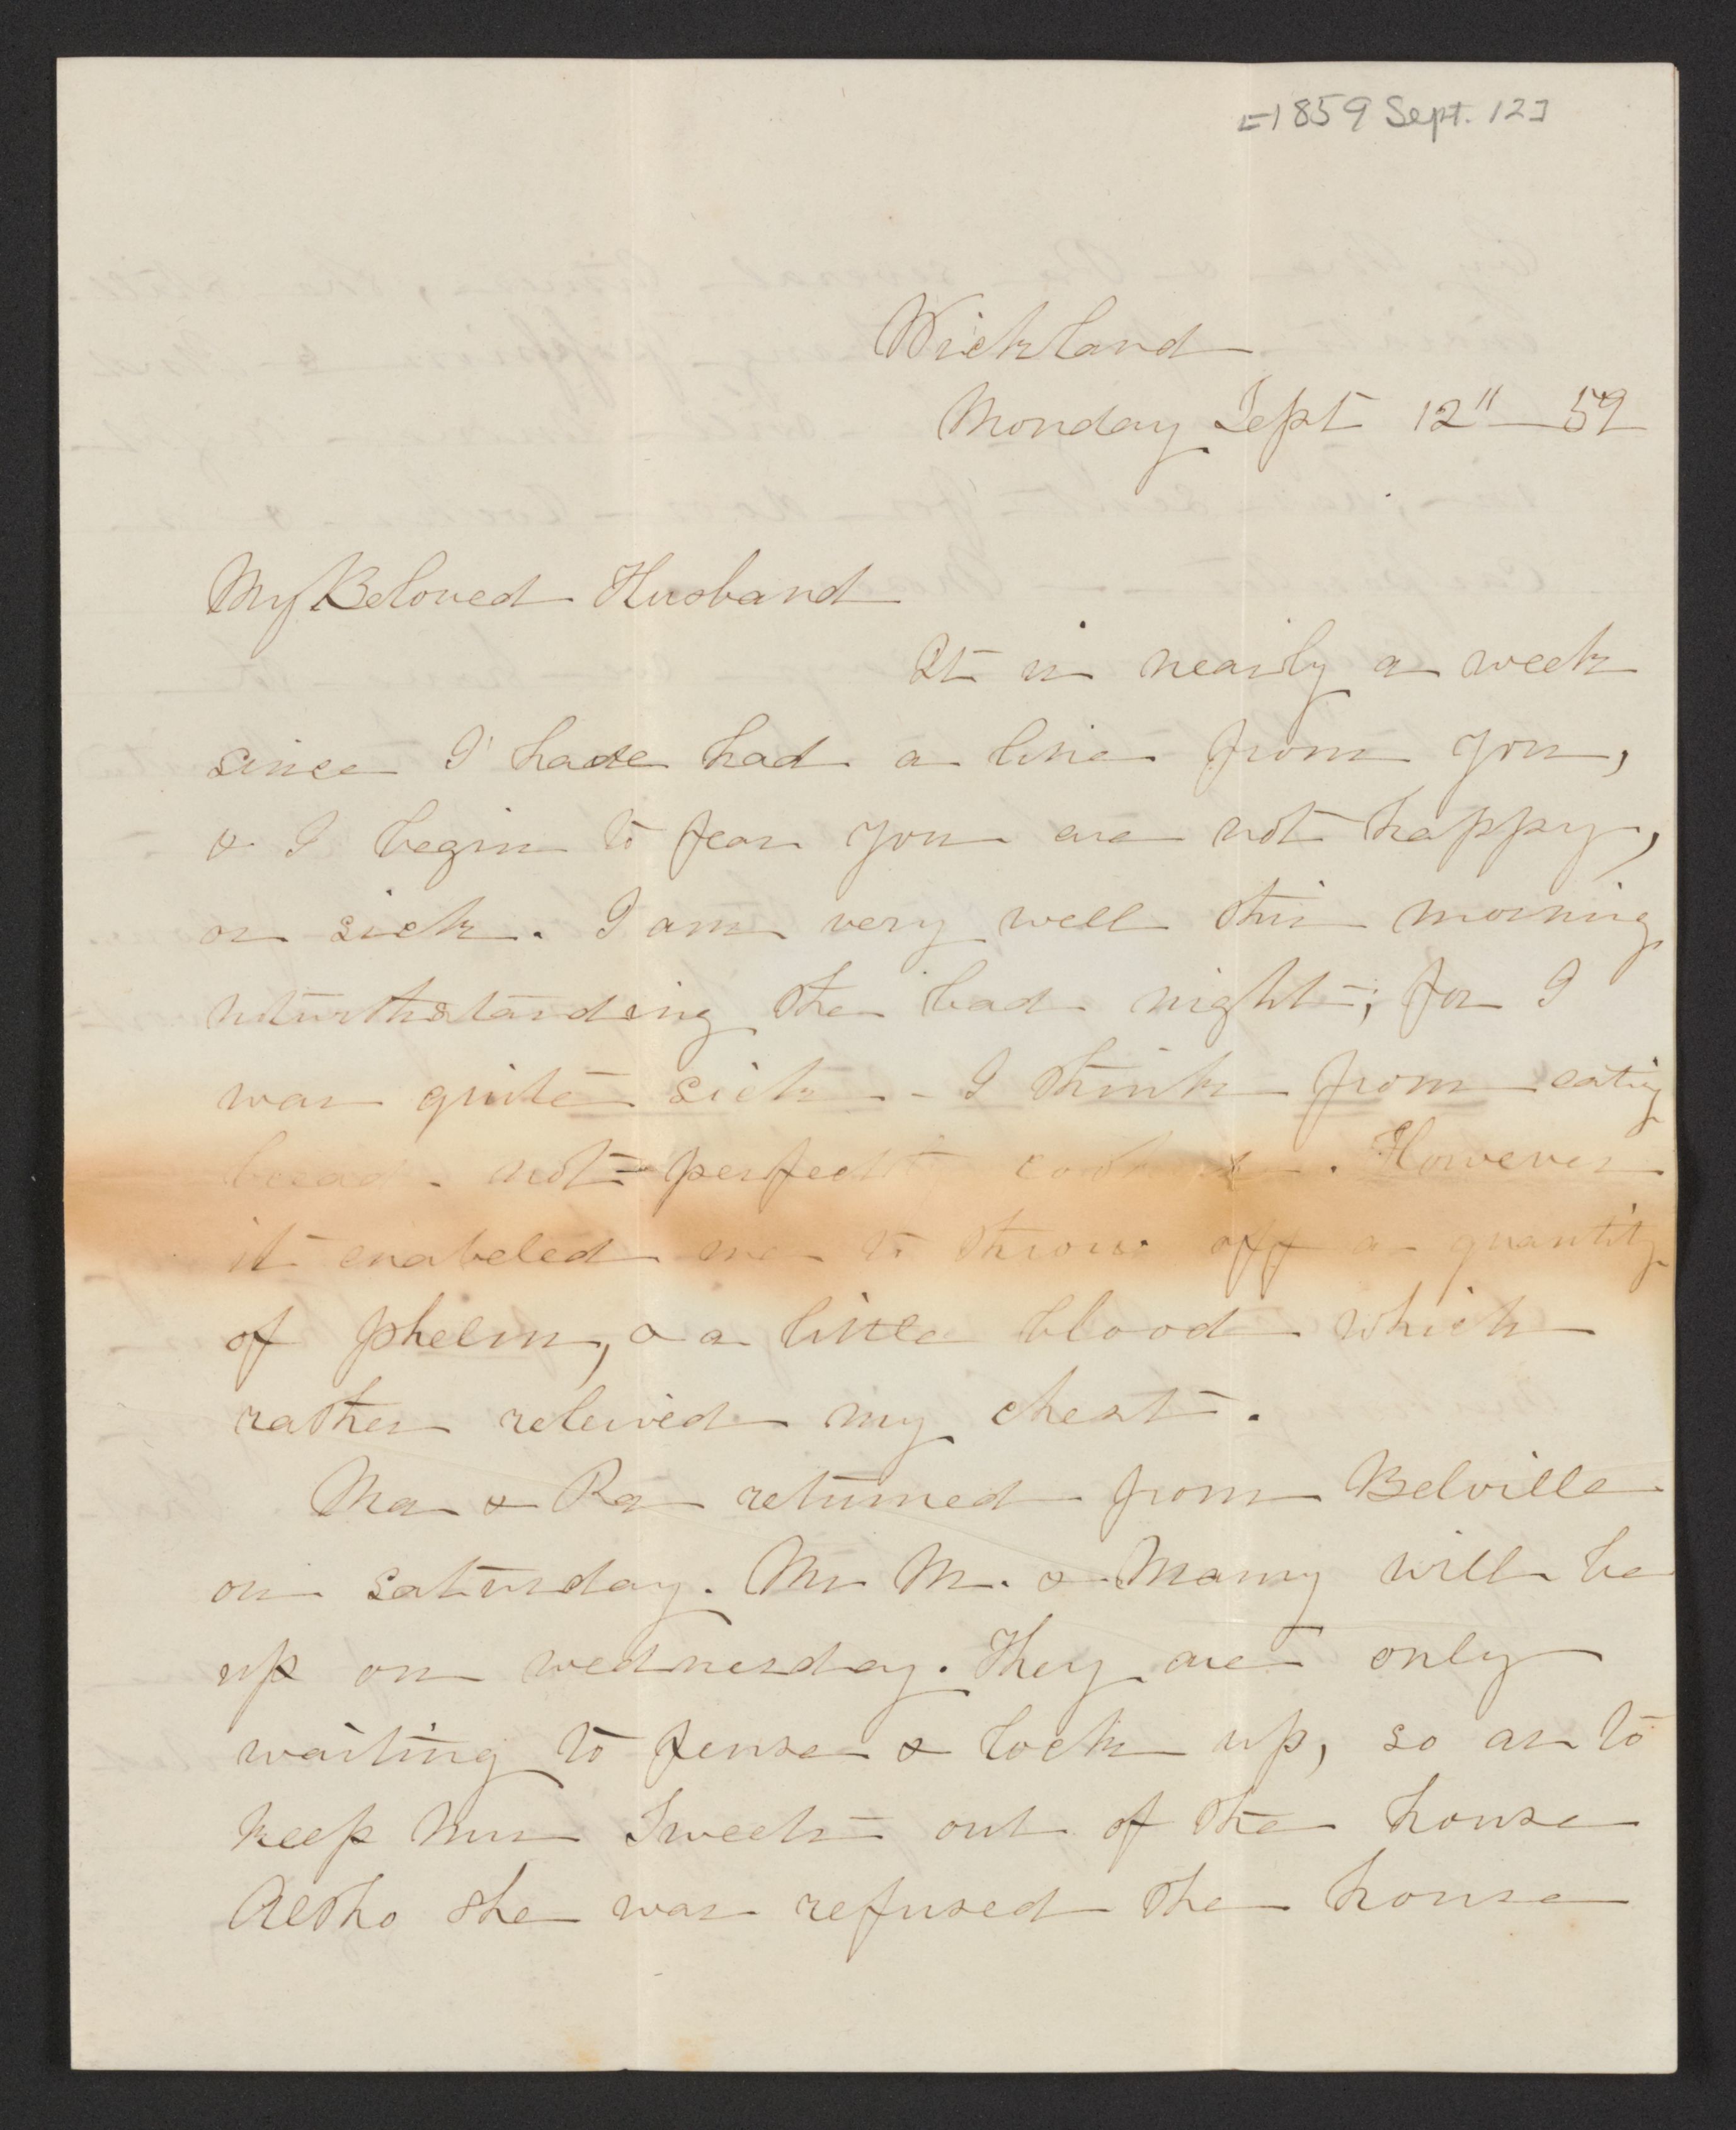 [1859 Sept. 12]
Wickland
Monday Sept 12" 59
My Beloved Husband
It is nearly a week
since I have had a line from you,
& I begin to fear you are not happy,
or sick. I am very well this morning
notwithstanding the bad night; for I
was quite sick - I think from eating
bread not perfectly cooked. However
it enabeled me to throw off a quantity
of phelm, & a little blood which
rather releived my chest.
Ma & Pa returned from Belville
on saturday. Mr M. & Mamy will be
up on wednesday. They are only
waiting to fense & lock up, so as to
keep Mrs Sweets out of the house
Altho she was refused the house